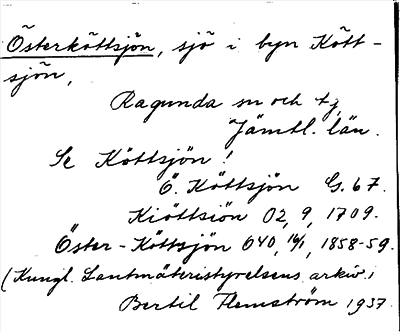 Österköttsjön, sjö i byn Kött-
sjön,
Ragunda sn och tg,
Jämtl. län.
Se Köttsjön!
Ö. Köttsjön G. 67.
Kiöttsiön O2, 9, 1709.
Öster-Köttsjön O40, 16/1, 1858-59.
(Kungl. Lantmäteristyrelsens arkiv.)
Bertil Flemström 1937.